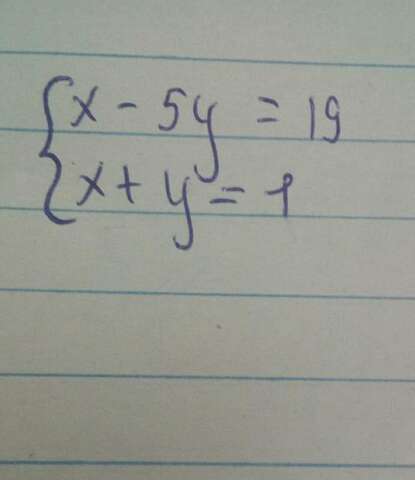 x - 5y = 19
x + y = 1